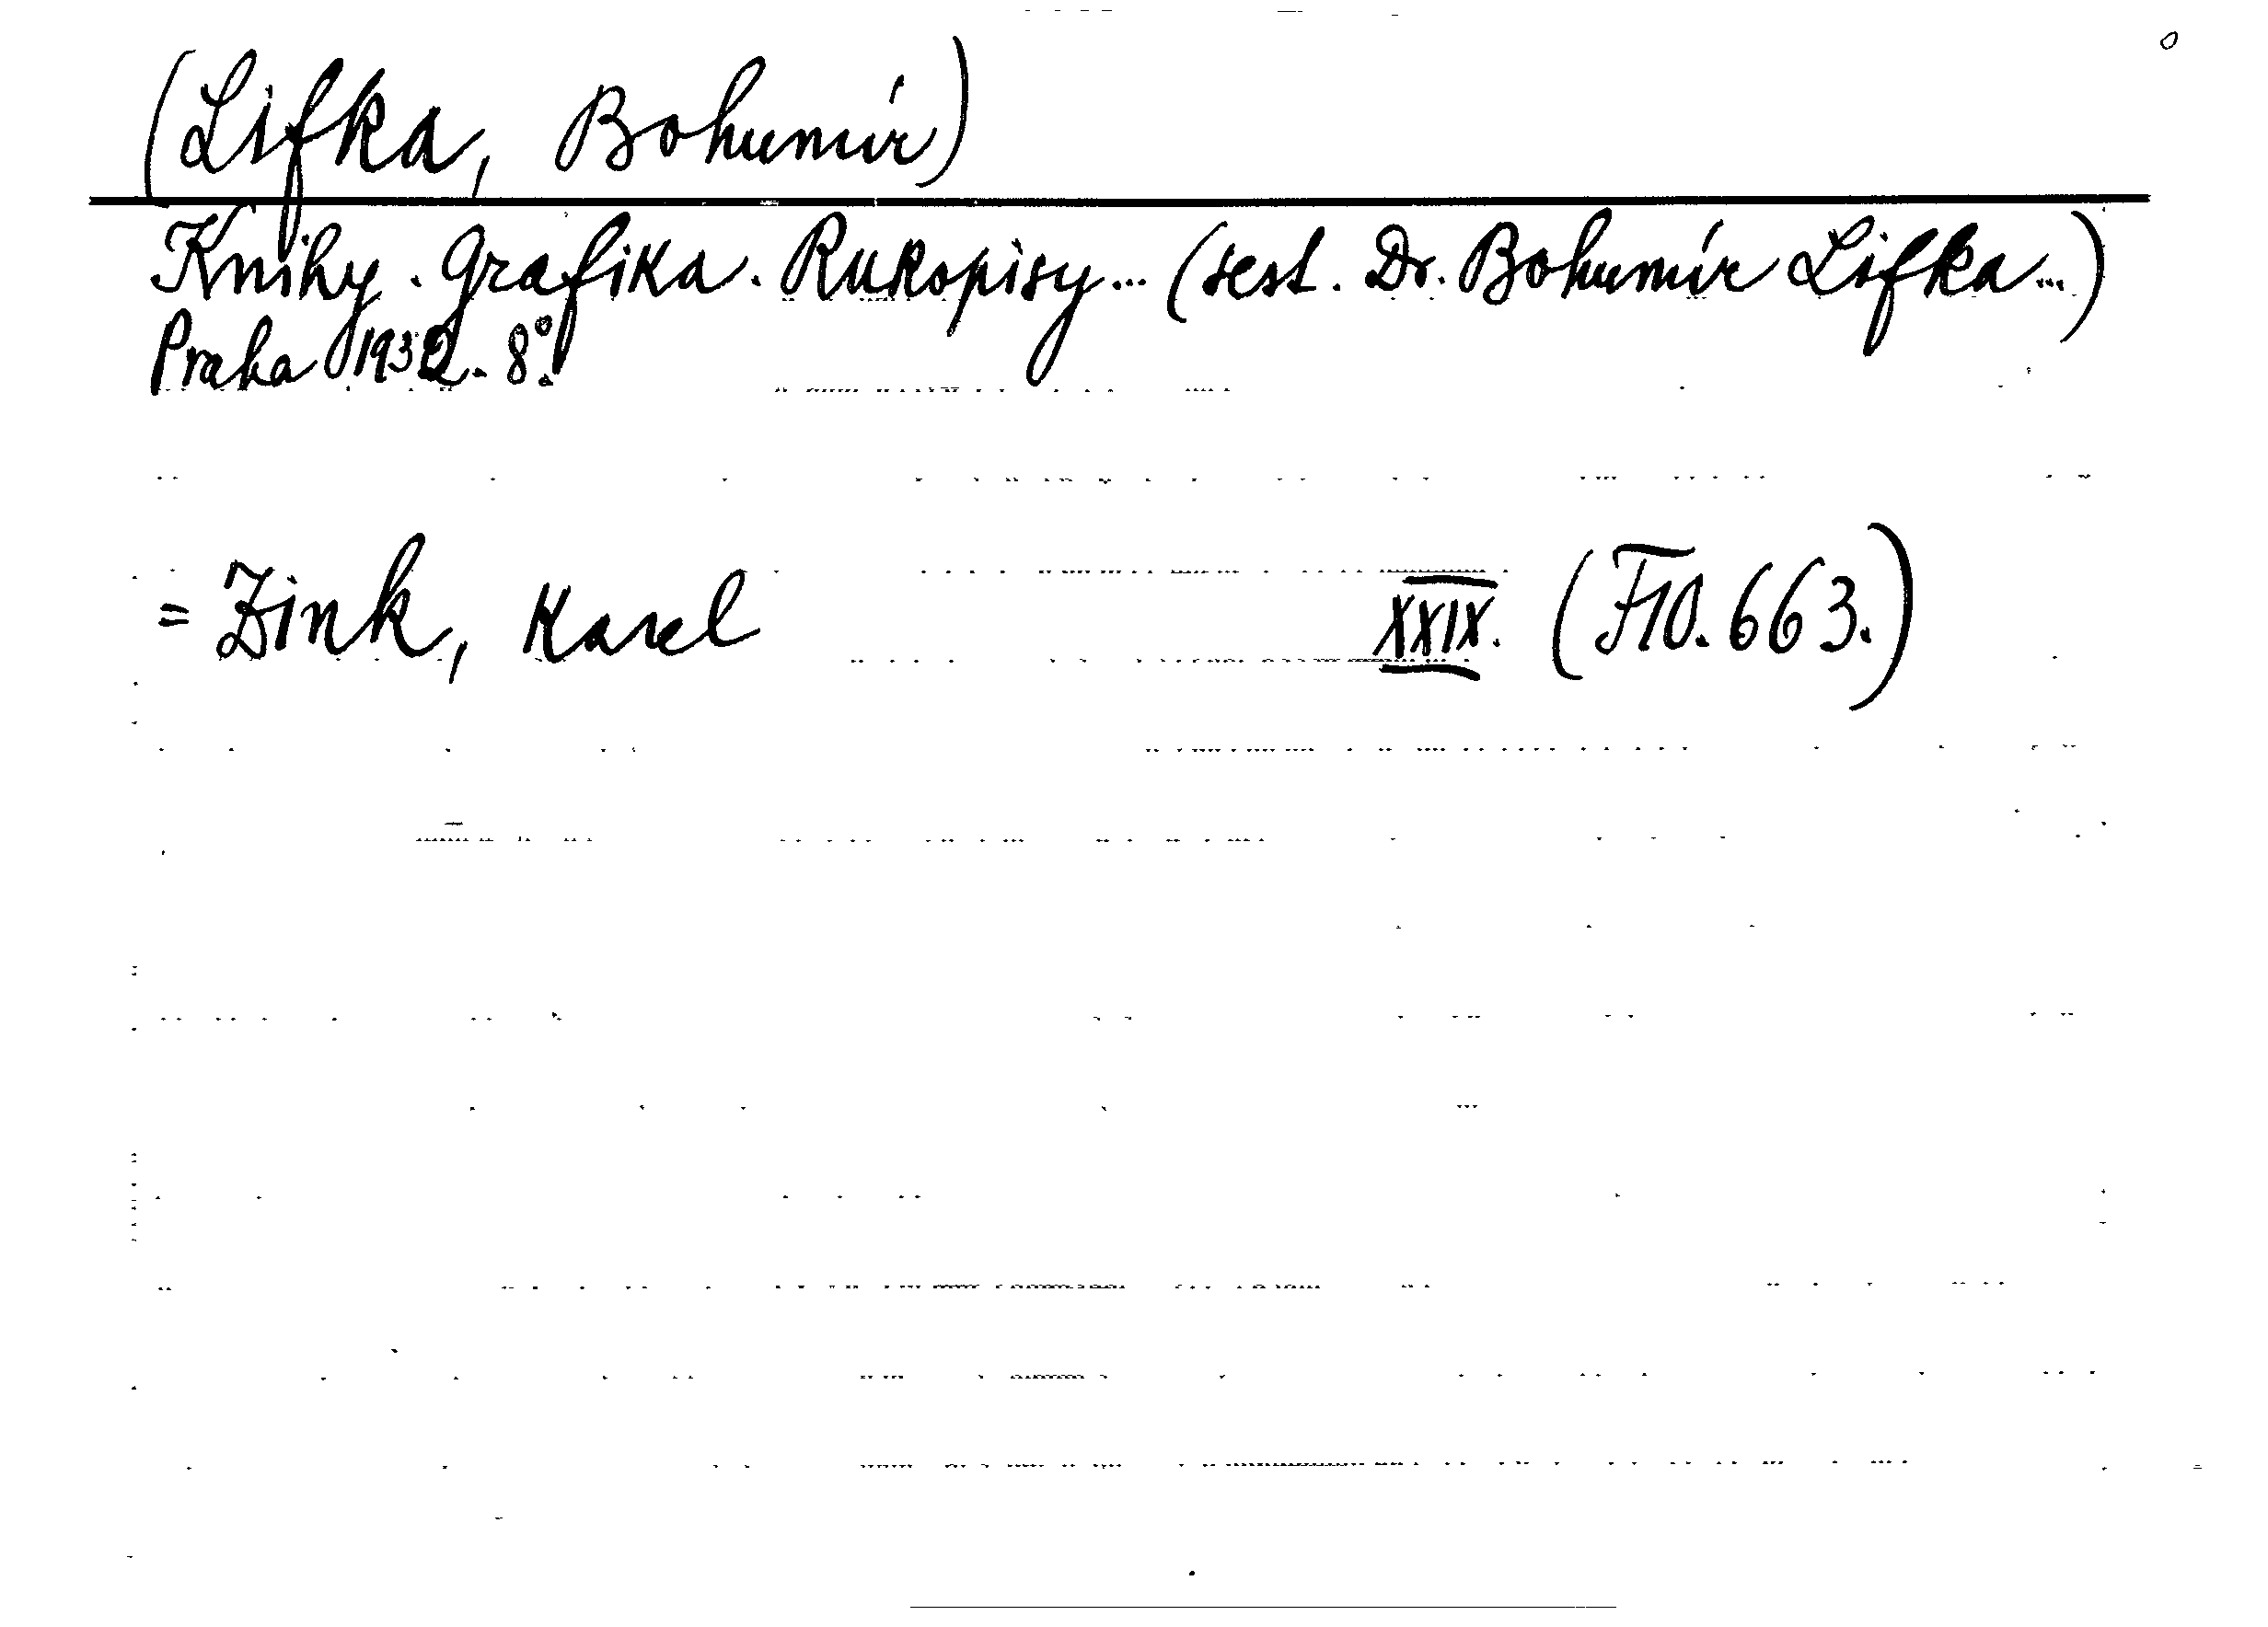 (Lifka, Bohumír)
Knihy. Grafika. Rukopisy... (sest. Dr. Bohumír Lifka...)
Praha 1932. 8°.
= Zink, Karel XXIX. (F10.663.)